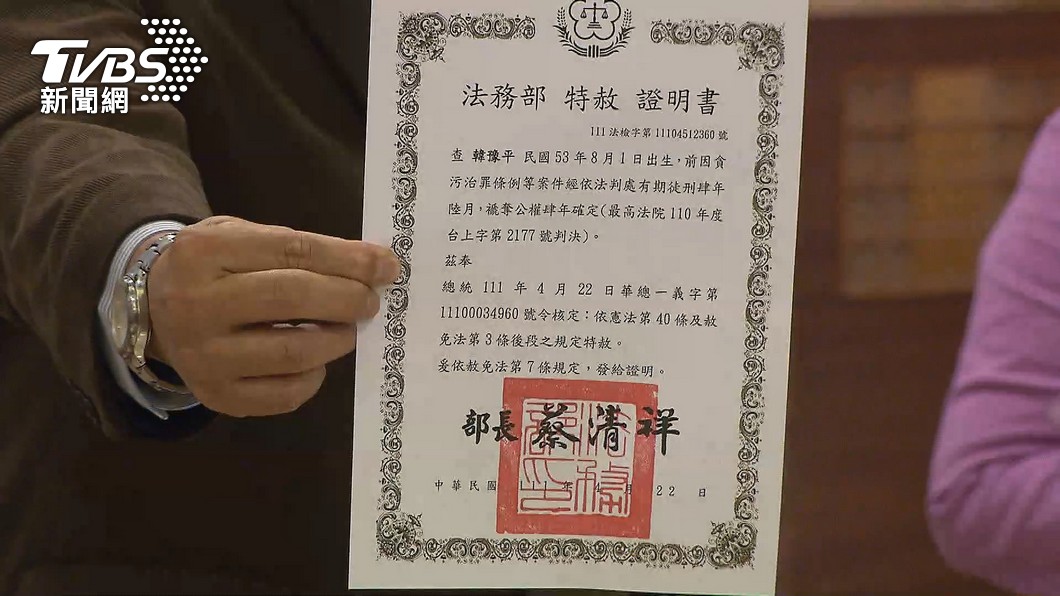 TVBS
新聞網
法務部 特赦 證明書
111法檢字第11104512360號
查 韓豫平 民國53年8月1日出生，前因貪
污治罪條例等案件經依法判處有期徒刑肆年
陸月，褫奪公權肆年確定(最高法院110年度
台上字第2177號判決)。
茲奉
總統 111 年 4 月 22 日華總一義字第
11100034960號令核定：依憲法第40條及赦
免法第3條後段之規定特赦。
爰依赦免法第7條規定，發給證明。
部長 蔡清祥
中華民國 111 年 4 月 22 日